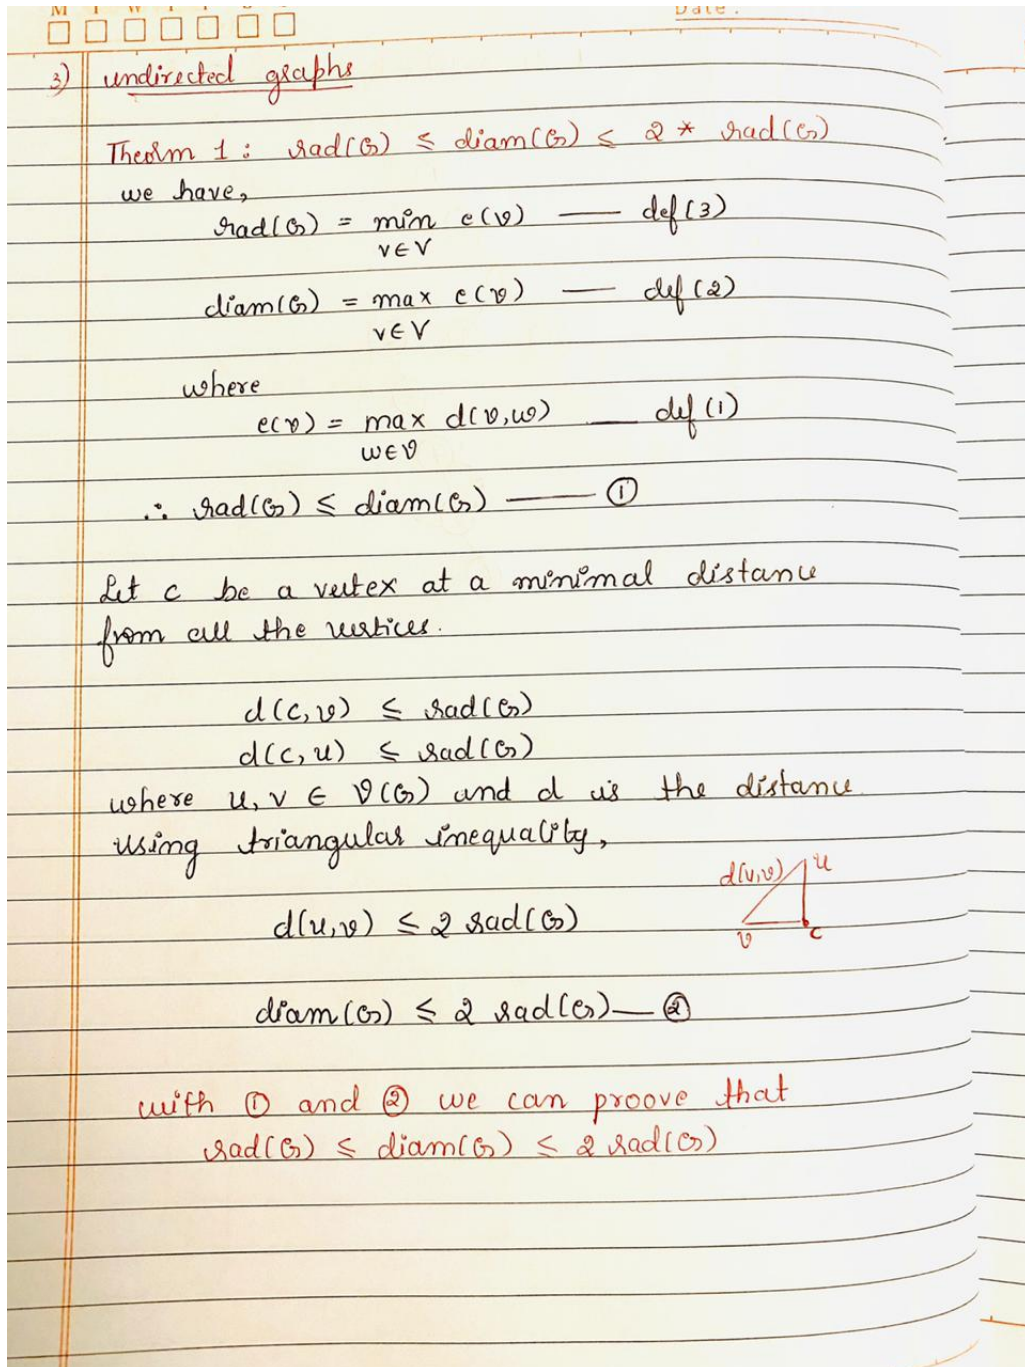 Date.
3) undirected graphs
Theorm 1: rad(G) ≤ diam(G) ≤ 2 * rad(G)
we have,
rad(G) = min e(v) — def(3)
v∈V
diam(G) = max e(v) — def(2)
v∈V
where
e(v) = max d(v,w) — def(1)
w∈v
∴ rad(G) ≤ diam(G) — ①
Let c be a vertex at a minimal distance
from all the vertices.
d(c,v) ≤ rad(G)
d(c,u) ≤ rad(G)
where u,v ∈ V(G) and d is the distance
using triangular inequality,
d(u,v) u
d(u,v) ≤ 2 rad(G)
v c
diam(G) ≤ 2 rad(G) — ②
with ① and ② we can proove that
rad(G) ≤ diam(G) ≤ 2 rad(G)